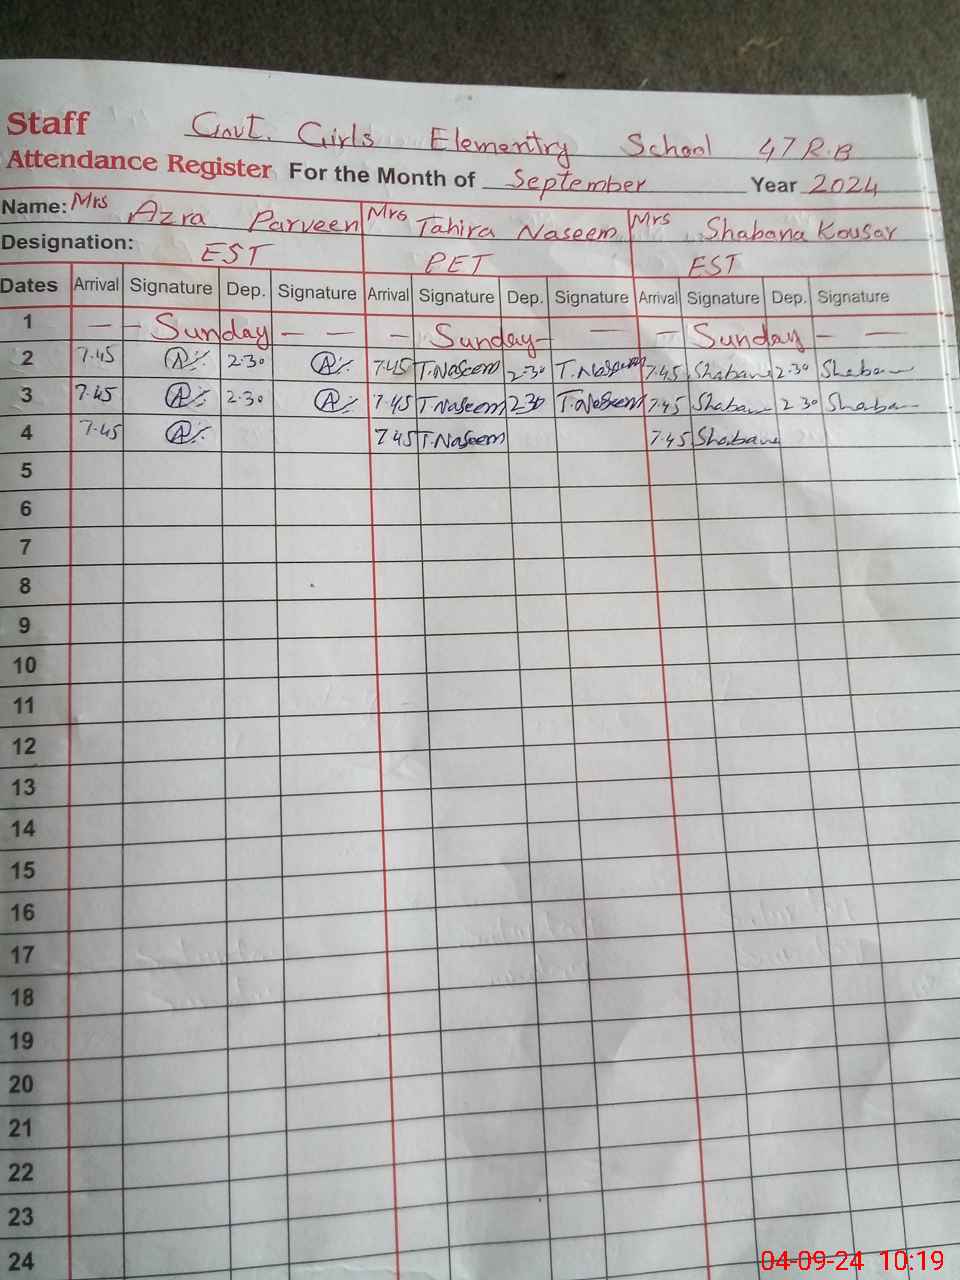 Staff Govt. Girls Elementry School 47 R.B
Attendance Register For the Month of September Year 2024
Name: Mrs Azra Parveen Mrs Tahira Naseem Mrs Shabana Kousar
Designation: EST PET EST
Dates Arrival Signature Dep. Signature Arrival Signature Dep. Signature Arrival Signature Dep. Signature
1 — — Sunday — — — Sunday — — — Sunday — —
2 7.45 A 2.30 A 7.45 T.Naseem 2.30 T.Naseem 7.45 Shabana 2.30 Shabana
3 7.45 A 2.30 A 7.45 T.Naseem 2.30 T.Naseem 7.45 Shabana 2.30 Shabana
4 7.45 A 7.45 T.Naseem 7.45 Shabana
5
6
7
8
9
10
11
12
13
14
15
16
17
18
19
20
21
22
23
24
04-09-24 10:19